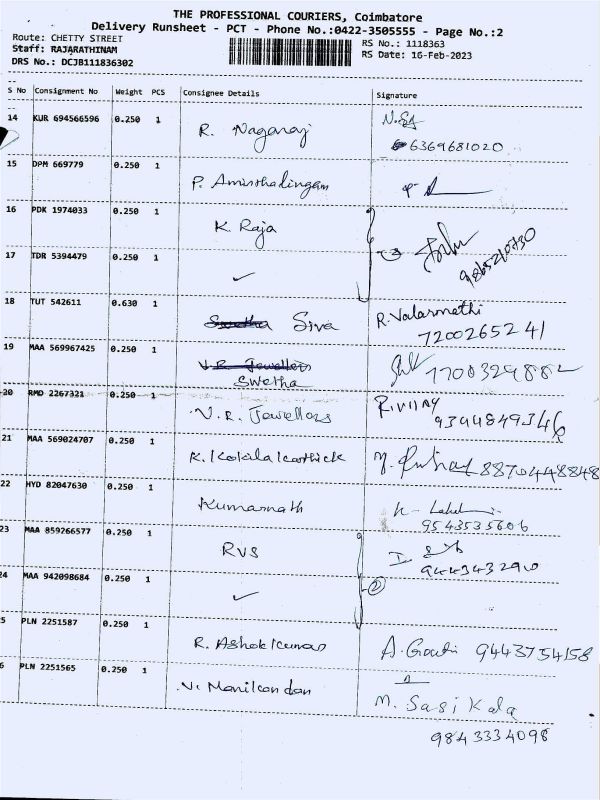 THE PROFESSIONAL COURIERS, Coimbatore
Delivery Runsheet - PCT - Phone No.:0422-3505555 - Page No.:2
Route: CHETTY STREET
RS No.: 1118363
Staff: RAJARATHINAM
RS Date: 16-Feb-2023
DRS No.: DCJB111836302
S No Consignment No Weight PCS Consignee Details Signature
14 KUR 694566596 0.250 1 R. Nagaraj
6369681020
15 DPM 669779 0.250 1 P. Amirthalingam
16 PDK 1974033 0.250 1 K. Raja
17 TDR 5394479 0.250 1 ✓
18 TUT 542611 0.630 1 Swetha Siva R. Valarmathi
7200265241
19 MAA 569967425 0.250 1 V.R. Jewellers
Swetha
20 RMD 2267321 0.250 1 V.R. Jewellers R. VIJAY
9344849346
21 MAA 569024707 0.250 1 K. Kokila Karthick 8870448848
22 HYD 82047630 0.250 1 Kumarnath
9543535606
23 MAA 859266577 0.250 1 RVS
9443432910
24 MAA 942098684 0.250 1 ✓ 2
5 PLN 2251587 0.250 1 R. Ashok Kumar 9443754158
6 PLN 2251565 0.250 1 V. Manikandan M. Sasikala
9843334098